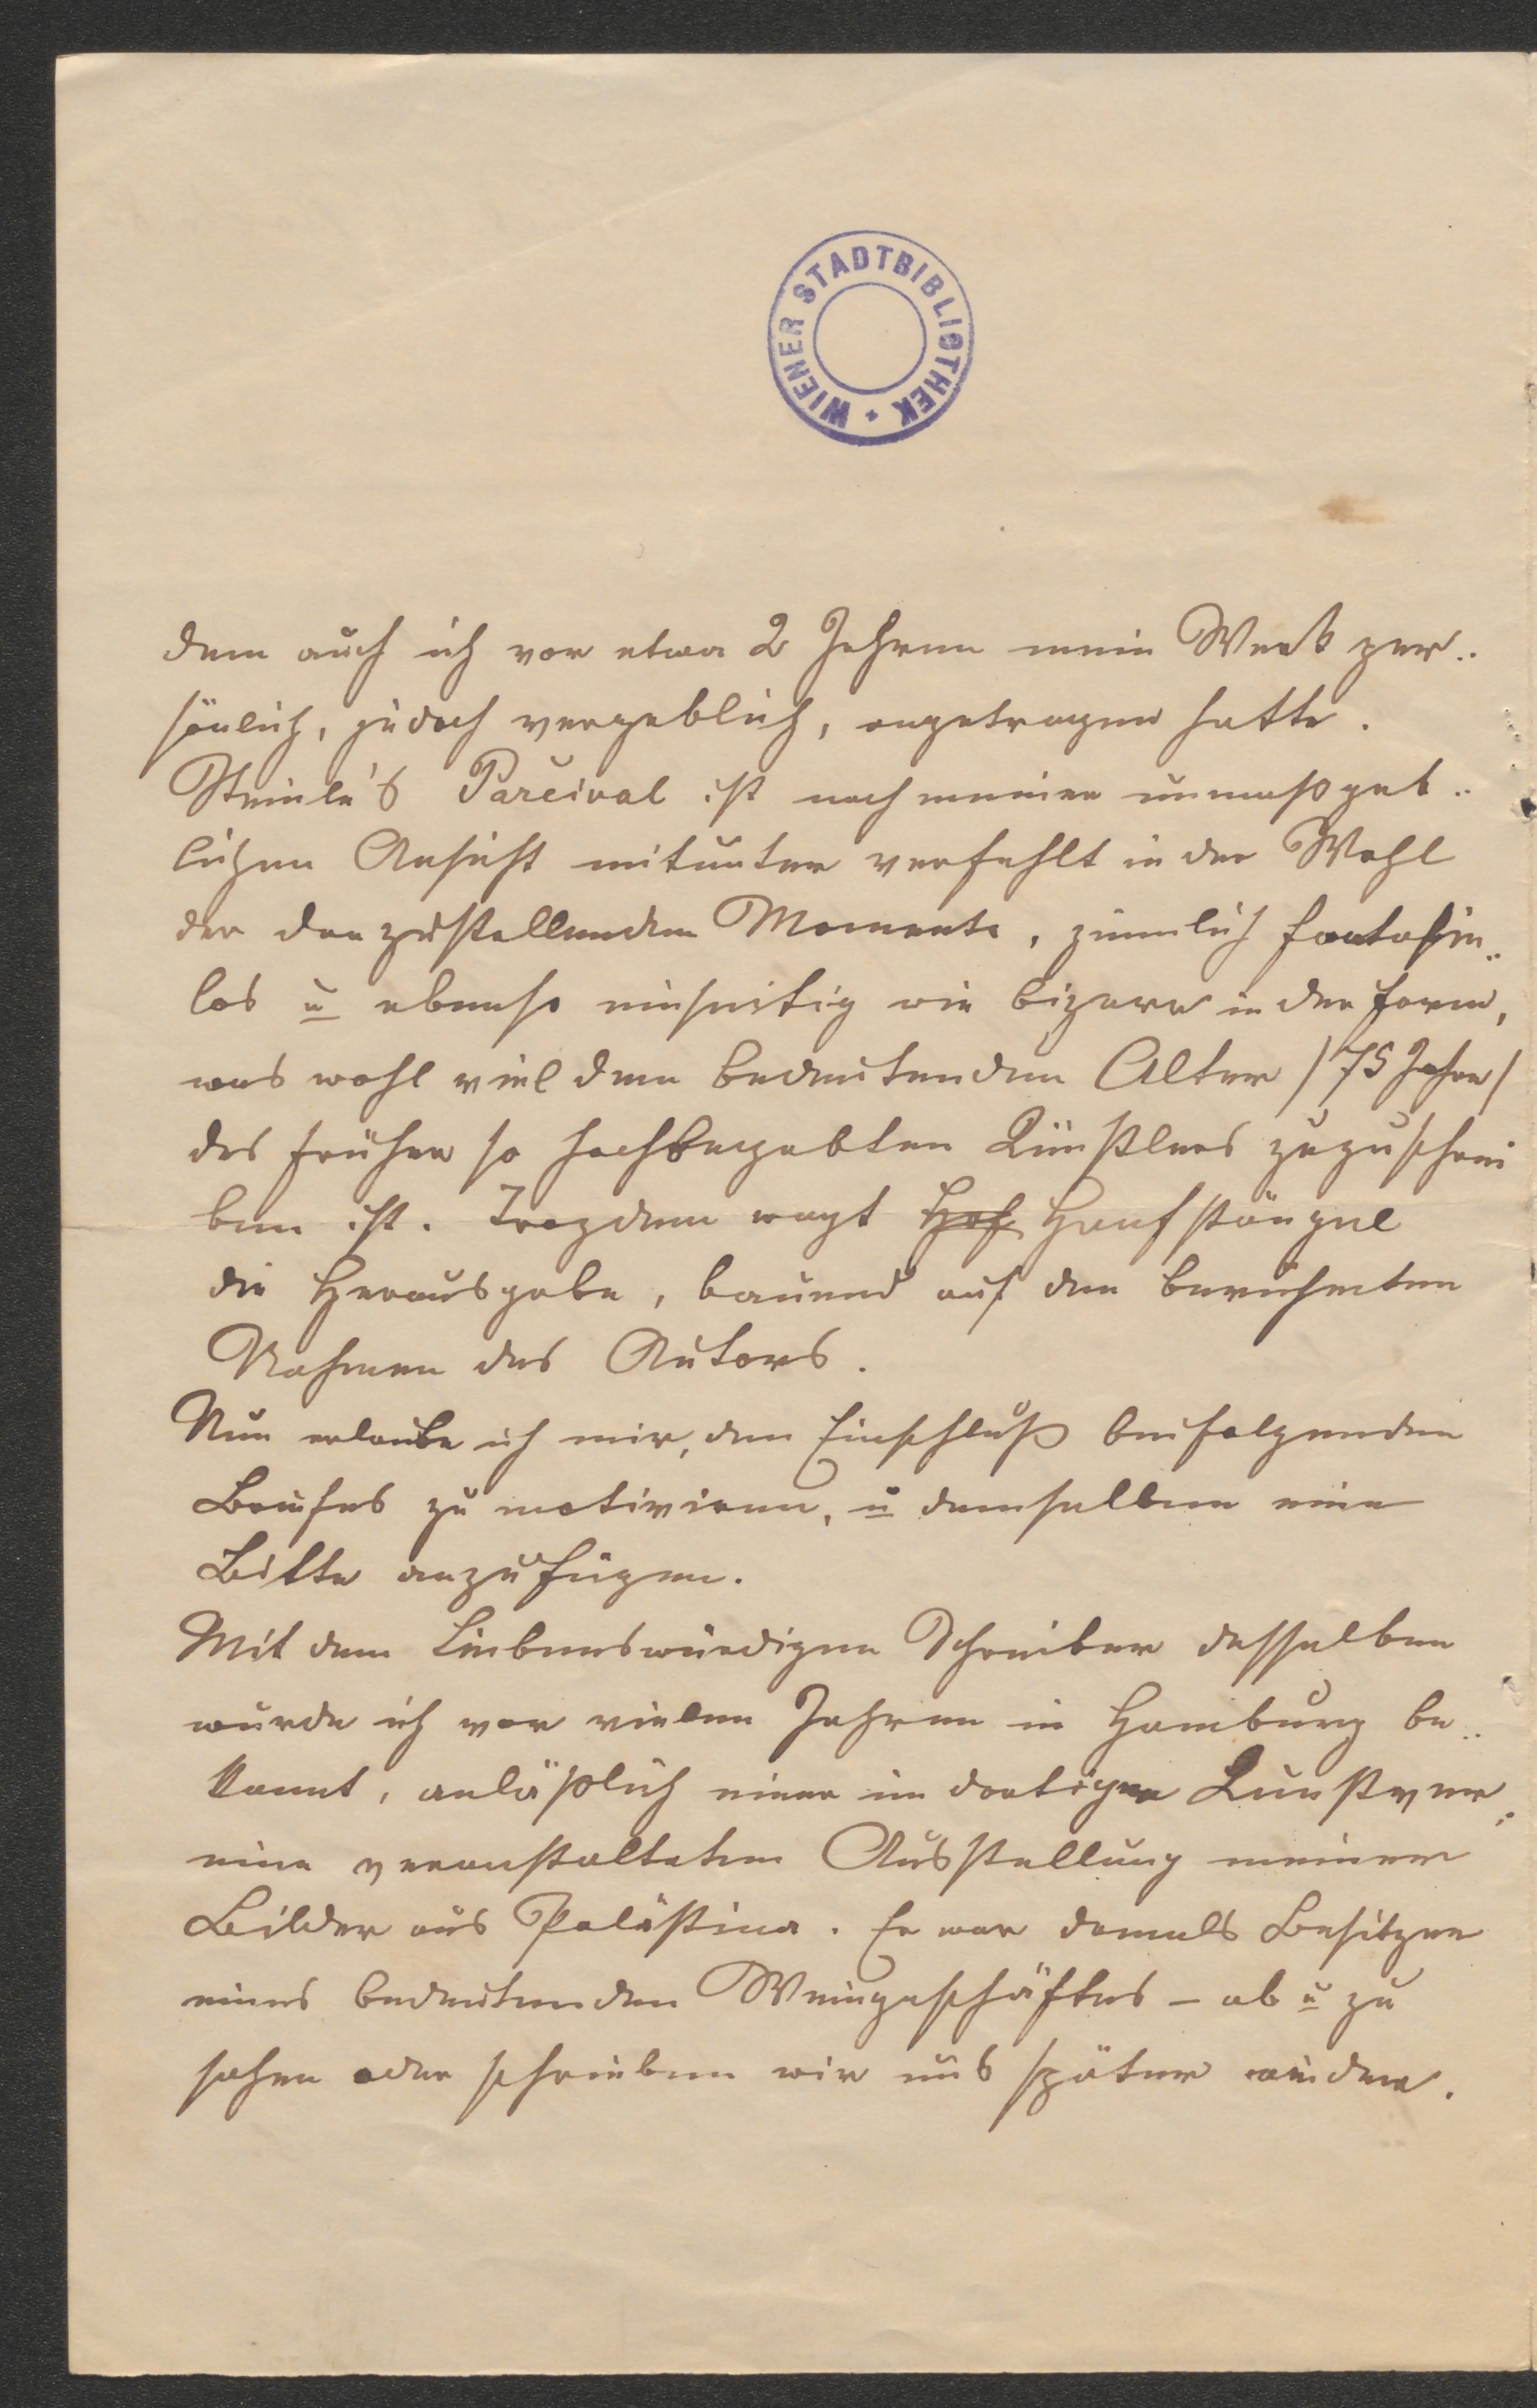 WIENER STADTBIBLIOTHEK
dem auch ich vor etwa 2 Jahren mein Werk per..
sönlich, jedoch vergeblich, angetragen hatte.
Steinle's Parcival ist nach meiner unmaßgeb..
lichen Ansicht mitunter verfehlt in der Wahl
der darzustellenden Momente, ziemlich fantasie..
los u ebenso einseitig wie bizarr in der Form,
was wohl viel dem bedeutenden Alter /75 Jahre/
des früher so hochbegabten Künstlers zuzuschrei
ben ist. Trozdem wagt Hof Hanfstängel
die Herausgabe, bauend auf den berühmten
Nahmen des Autors.
Nun erlaube ich mir, den Einschluß beifolgenden
Briefes zu motiviren, u demselben eine
Bitte anzufügen.
Mit dem Liebenswürdigen Schreiber desselben
wurde ich vor vielen Jahren in Hamburg be..
kannt, anläßlich einer im dortigen Kunstver..
eine veranstalteten Ausstellung meiner
Bilder aus Palästina. Er war damals Besitzer
eines bedeutenden Weingeschäftes – ab u zu
sahen oder schrieben wir uns später wieder.